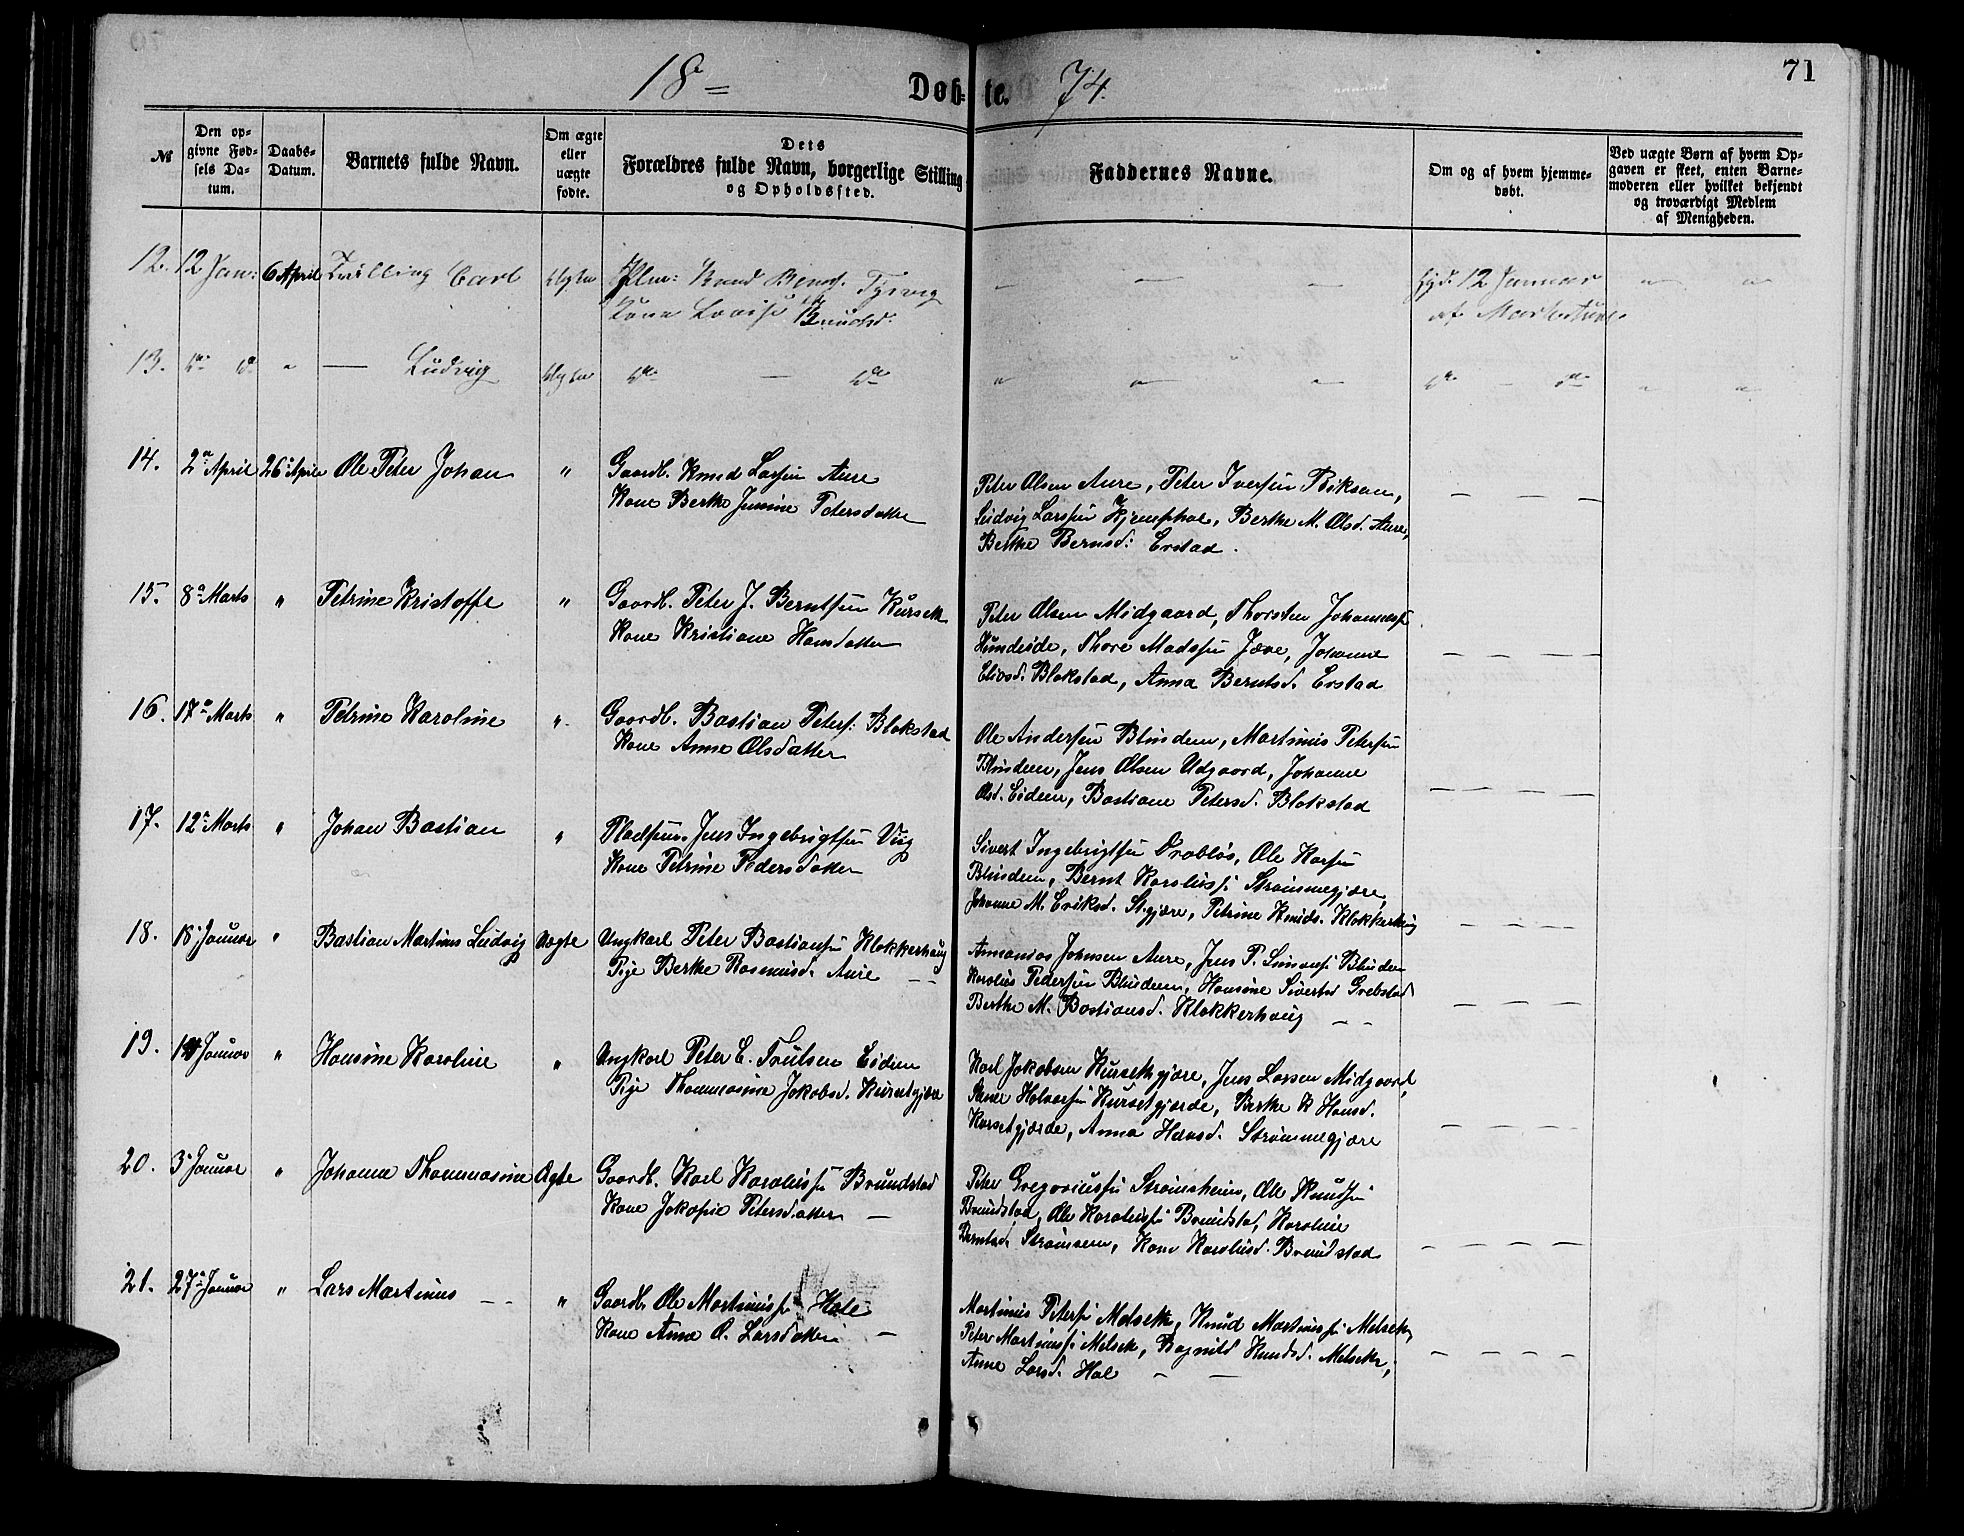 71
18 = Døb- te. 74.
№
Den op-
givne Fød-
sels Da-
tum.
Daabs-
Datum.
Barnets fulde Navn.
Om ægte
eller
uægte
fødte.
Dets
Forældres fulde Navn, borgerlige Stilling
og Opholdssted.
Faddernes Navne.
Om og af hvem hjemme-
døbt.
Ved uægte Børn af hvem Op-
gaven er skeet, enten Barne-
moderen eller hvilket bekjendt
og troværdigt Medlem
af Menigheden.
12. 12 Jan: 6 April Tvilling Carl Ægte Knud
Kone Lovise Knudsd.
hjd. 12 Januar
af
13. do do " — Ludvig Ægte do — do
do — do
14. 2 April 26 April Ole Peter Johan " Gaardb. Knud Larsen Aure
Kone Berthe Jensine Petersdatter
Peter Olsen Aure, Peter Iversen
Ludvig Larsen Berthe M. Olsd. Aure,
Berthe Berntsd: Erstad.
15. 8 Marts " Petrine Kristoffe " Gaardb. Peter J. Berntsen Kursetk
Kone Kristiane Hansdatter
Peter Olsen Midgaard, Thorsten Johanness
Thore Madssen Jæve, Johanne
Blakstad, Anna Berntsd. Erstad
16. 17 Marts " Petrine Karoline " Gaardb. Bastian Peters. Blakstad
Kone Anne Olsdatter
Ole Andersen Blindem, Martinus Petersen
Blindem, Jens Olsen Udgaard, Johanne
Olsd. Eidem, Bastiane Petersd. Blakstad
17. 12 Marts " Johan Bastian " Pladsm. Jens Ingebrigtsen Vig
Kone Petrine Pedersdatter
Sivert Ingebrigtsen Ole
Blindem, Bernt Karoliuss. Strømmegjære,
Johanne M. Eriksd. St.gjære, Petrine Knuds. Klokkerhaug
18. 18 Januar " Bastian Martinus Ludvig Uægte Ungkarl Peter Bastiansen Klokkerhaug
Pige Berthe Rasmusd. Aure
Johnsen Aure, Jens P. Simons. Blindem
Karolius Pedersen Blindem, Hansine Sivertsd. Grebstad
Berthe M. Bastiansd. Klokkerhaug
19. Januar " Hansine Karoline " Ungkarl Peter E. Trulsen Eidem
Pige Thommasine Jakobsd. Kursetgjære
Karl Jakobsen Kursetkgjære, Jens Larsen Midgaard,
Kursetgjærde, Berthe K Hansd.
Kursetgjærde, Anna Hansd. Strømmegjære
20. 3 Januar " Johanne Thommasine Ægte Gaardb. Karl Karoliuss. Brundstad
Kone Jakopie Petersdatter —
Peter Gregoriuss. Strømsheim, Ole Knudsen
Brundstad, Ole Karoliuss. Brundstad, Karoline
Berntsd. Strømsem, Karoliusd. Brundstad
21. 27 Januar " Lars Martinus — — " Gaardb. Ole Martinuss. Hale
Kone Anne O. Larsdatter —
Martinus Peters. Melsetk, Knud Martinuss. Melsetk,
Peter Martinuss. Melsetk, Ragnild Knudsd. Melsetk,
Anne Larsd. Hal